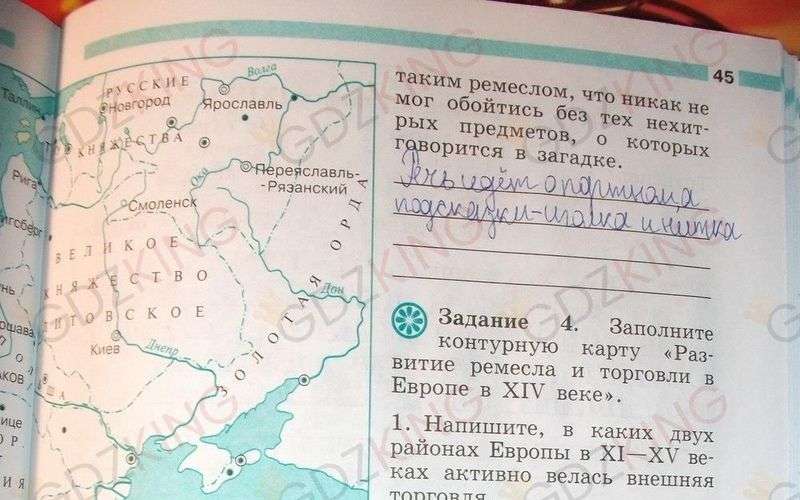 45
Волга
РУССКИЕ
Новгород
Ярославль
КНЯЖЕСТВА
Ока
Переяславль-
-Рязанский
Рига
Смоленск
ВЕЛИКОЕ
КНЯЖЕСТВО
ЛИТОВСКОЕ
Киев
Днепр
Дон
ЗОЛОТАЯ ОРДА
таким ремеслом, что никак не
мог обойтись без тех нехит-
рых предметов, о которых
говорится в загадке.
Речь идёт о портном, а
подсказки - иголка и нитка
Задание 4. Заполните
контурную карту «Раз-
витие ремесла и торговли в
Европе в XIV веке».
1. Напишите, в каких двух
районах Европы в XI—XV ве-
ках активно велась внешняя
торговля
GDZKING